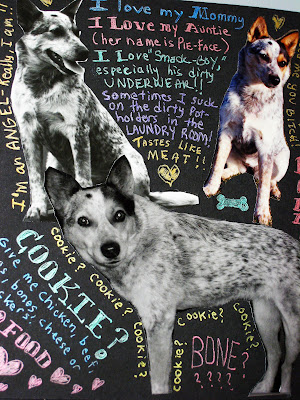 I love my Mommy
I Love my Auntie
(her name is PIE-FACE)
I LOVE "Smack-Boy,"
especially his dirty
UNDERWEAR!!
Sometimes I suck
on the dirty Pot-
holders in the
LAUNDRY ROOM!
TASTES LIKE
MEAT!!
I'm an ANGEL-Really, I am!!
COOKIE?
Give me chicken, beef,
bones, cheese or
FOOD
cookie?
cookie?
cookie?
cookie?
cookie?
cookie?
cookie?
cookie?
BONE?
? ? ? ?